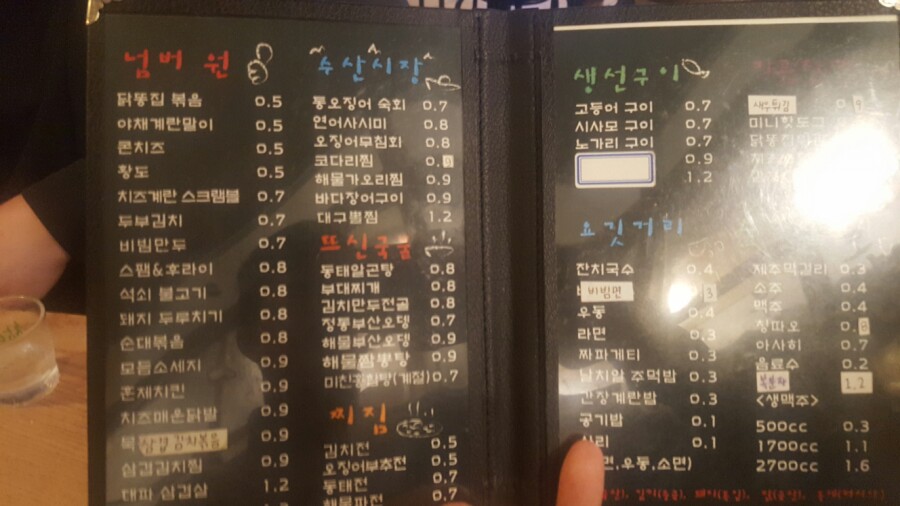 넘버 원
닭똥집 볶음 0.5
야채계란말이 0.5
콘치즈 0.5
황도 0.5
치즈계란 스크램블 0.7
두부김치 0.7
비빔만두 0.7
스팸&후라이 0.8
석쇠 불고기 0.8
돼지 두루치기 0.8
순대볶음 0.8
모듬소세지 0.9
훈제치킨 0.9
치즈매운닭발 0.9
삼겹김치볶음 0.9
삼겹김치찜 0.9
대파 삼겹살 1.2
수산시장
통오징어 숙회 0.7
연어사시미 0.8
오징어무침회 0.8
코다리찜
해물가오리찜 0.9
바다장어구이 0.9
대구뽈찜 1.2
뜨신국물
동태알곤탕 0.8
부대찌개 0.8
김치만두전골 0.8
정통부산오뎅 0.7
해물부산오뎅 0.9
해물짬뽕탕 0.9
(계절) 0.7
찌짐
김치전 0.5
오징어부추전 0.5
동태전 0.7
해물파전 0.7
생선구이
고등어 구이 0.7
시사모 구이 0.7
노가리 구이 0.7
0.9
1.2
요깃거리
잔치국수 0.4
비빔면
우동 0.4
라면 0.3
짜파게티 0.3
날치알 주먹밥 0.3
간장계란밥 0.3
공기밥 0.1
사리 0.1
면,우동,소면)
새우튀김
미니핫도그
제주막걸리 0.3
소주 0.4
맥주 0.4
칭따오
아사히 0.7
음료수 0.2
복분자 1.2
<생맥주>
500cc 0.3
1700cc 1.1
2700cc 1.6